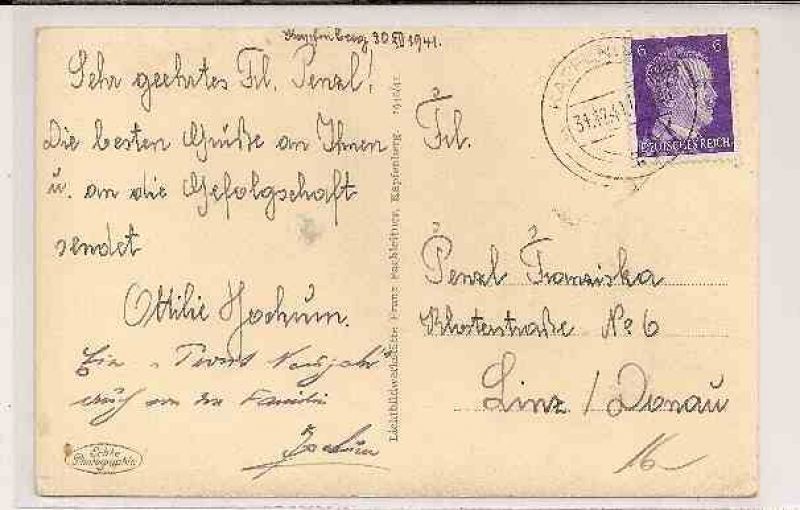 Kapfenberg 30 XII 1941.
Sehr geehrtes Frl. Penzl!
Die besten Grüße an Ihnen
u. an die Gefolgschaft
sendet
Ottilie Jochum.
Ein "Prosit Neujahr"
auch an die Familie
Jochum
Echte
Photographie
Lichtbildwerkstätte Franz Fachleitner, Kapfenberg.
31.12.41
6 6
DEUTSCHES REICH
Frl.
Penzl Franziska
Klosterstraße No 6
Linz / Donau